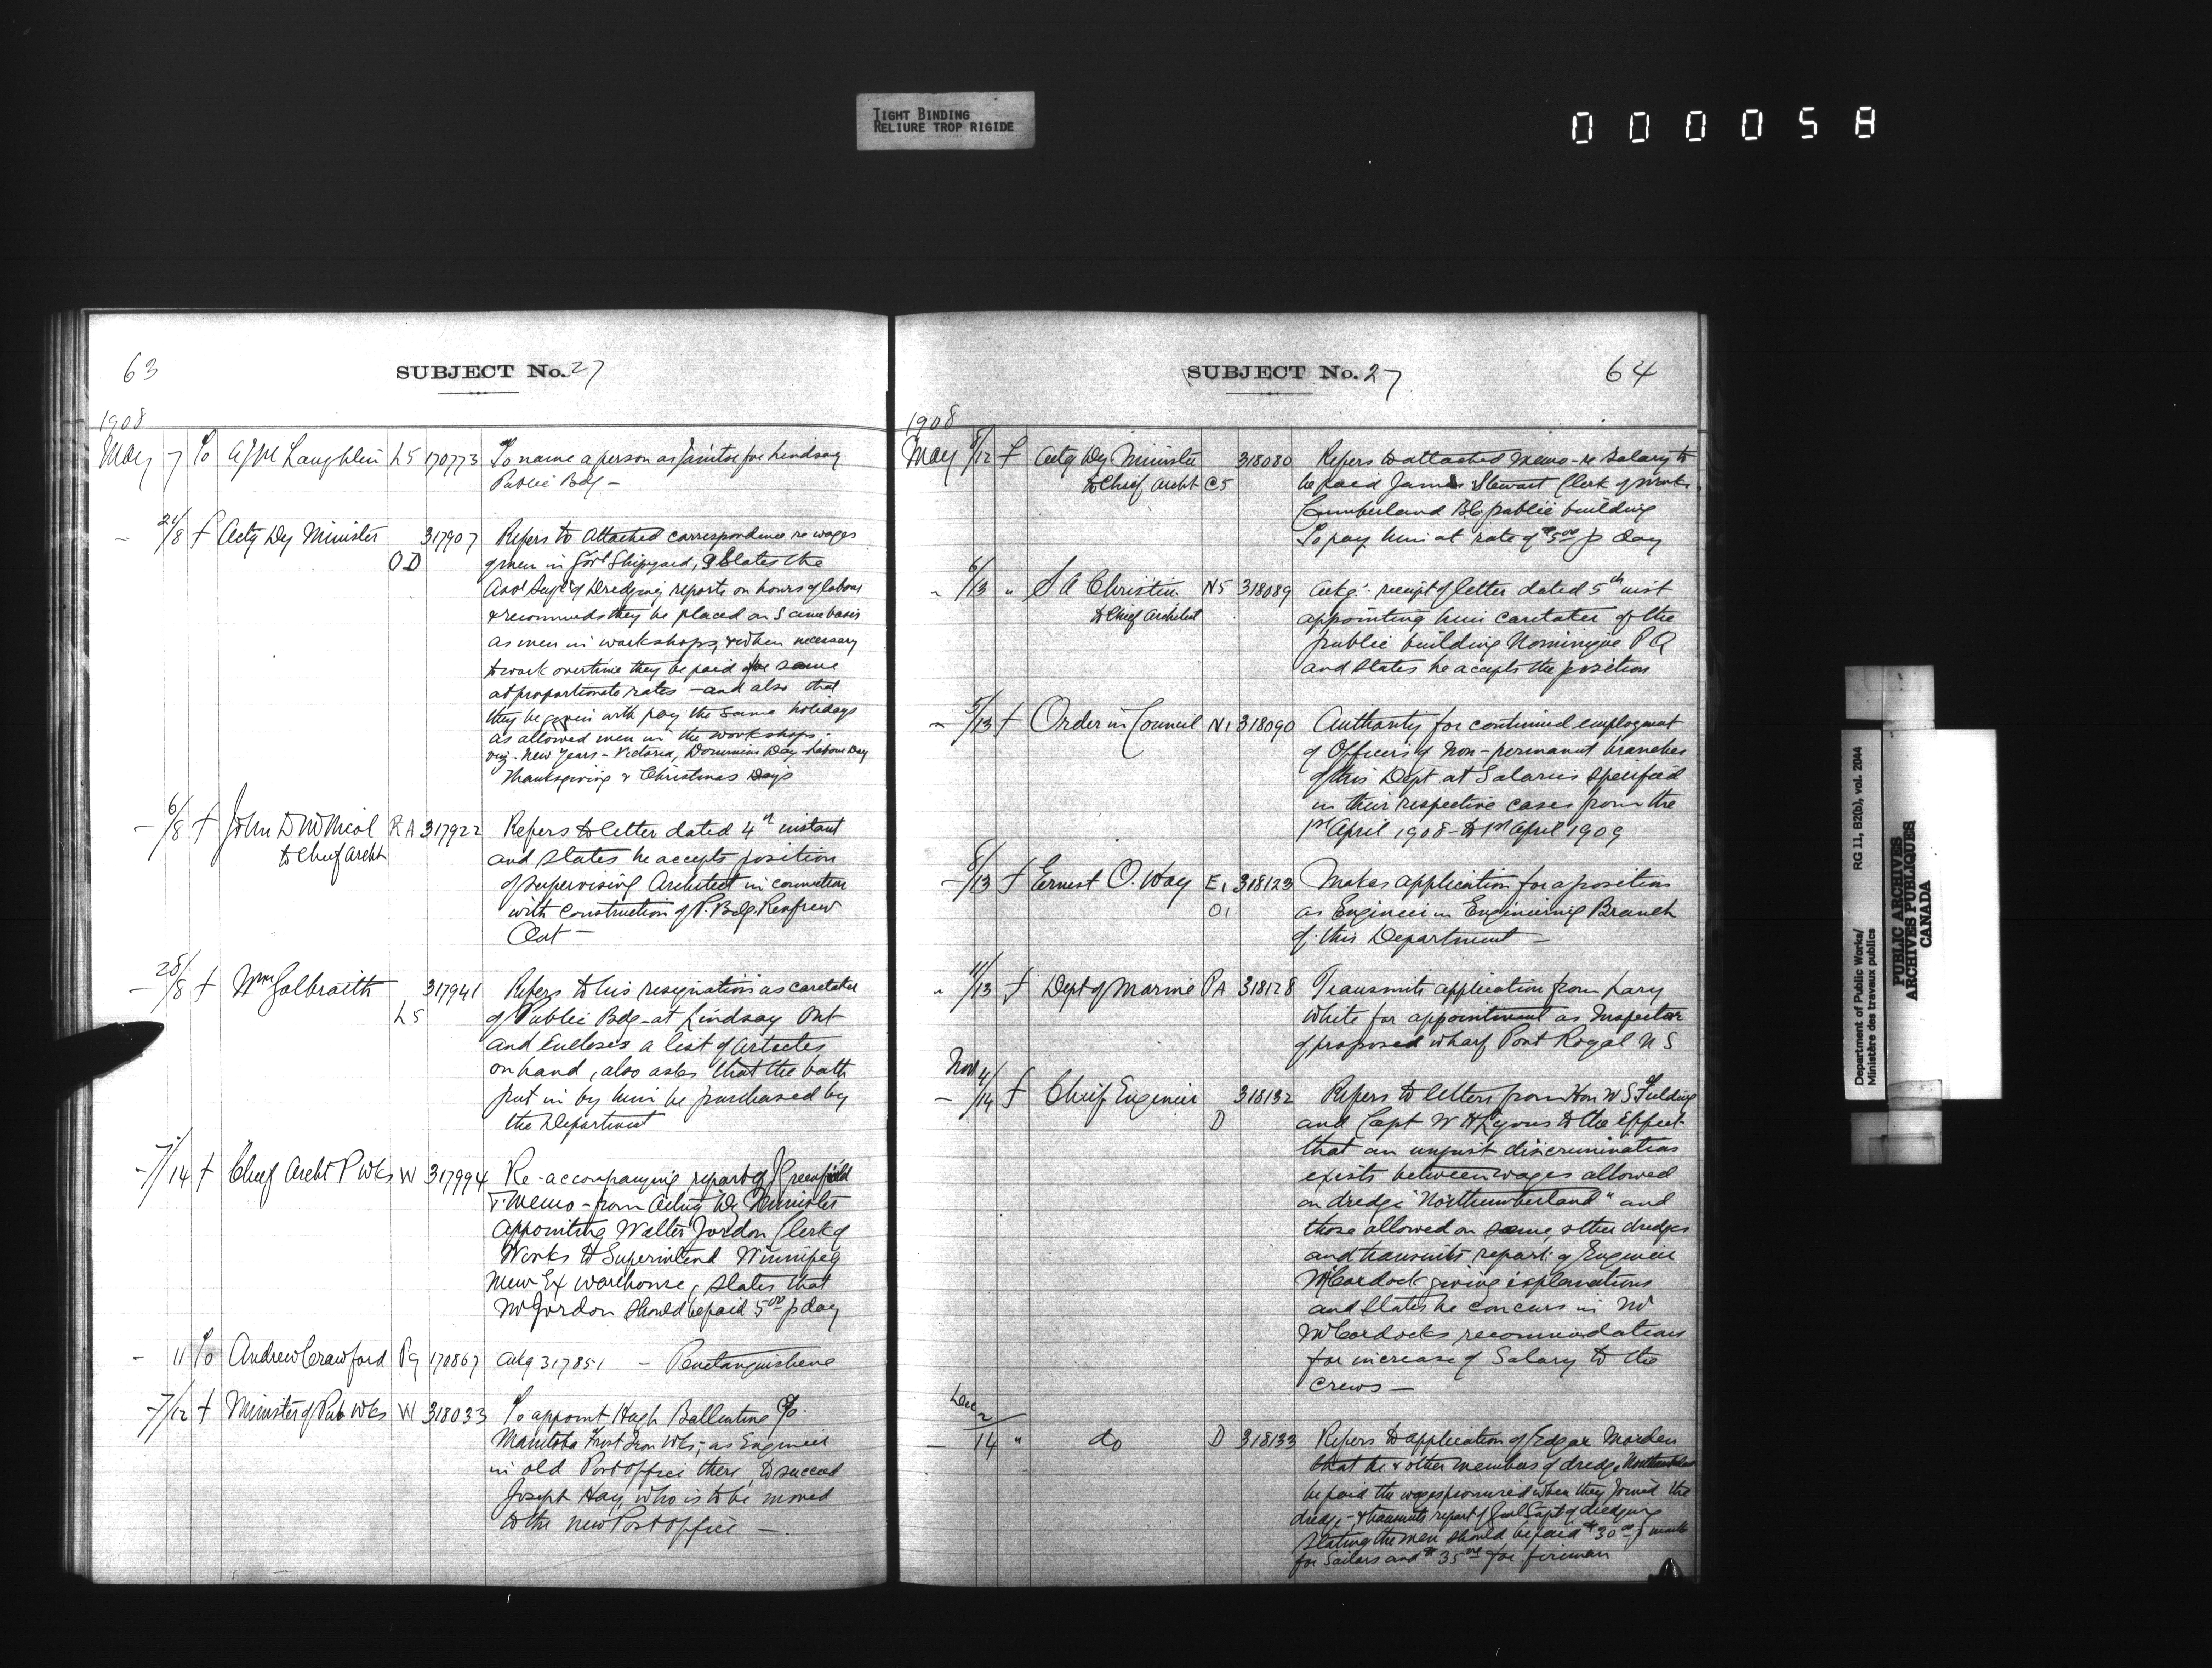 TIGHT BINDING
RELIURE TROP RIGIDE
000058
63
SUBJECT No. 27
1908
May 7 To A J McLaughlin L5 170773 To name a person as Janitor for Lindsay
Public Bdg -
- 24/8 f Actg Dy Minister 317907 Refers to attached correspondence re wages
O D of men in Govt Shipyard, & States the
of Dredging reports on hours of labour
& recommends they be placed on same basis
as men in workshops, & when necessary
to work overtime they be paid for same
at proportionate rates - and also that
they be given with pay the same holidays
as allowed men in the workshops -
viz - New Years - Victoria, Dominion Day - Labour Day
Thanksgiving & Christmas Days
- 6/8 f John D McNicol R A 317922 Refers to letter dated 4th instant
to Chief Archt and states he accepts position
of supervising Architect in connection
with construction of P. Bdg. Renfrew
Ont -
- 28/8 f Wm Galbraith 317941 Refers to his resignation as caretaker
L5 of Public Bdg - at Lindsay Ont
and Encloses a list of articles
on hand, also asks that the bath
put in by him be purchased by
the Department
- 7/14 f Chief Archt P Wks W 317994 Re - accompanying report of J Greenfield
& Memo - from Acting Dy Minister
appointing Walter Jordon Clerk of
Works to Superintend Winnipeg
new Ex warehouse, states that
Mr Jordon should be paid 5.00 p day
- 11 To Andrew Crawford P9 170867 Ackg 317851 - Penetanguishene
- 7/12 f Minister of Pub Wks W 318033 To appoint Hugh Ballentine c/o
Manitoba Iron Wks; as Engineer
in old Post office there, to succeed
Joseph Hay, who is to be moved
to the new Post office -
SUBJECT No. 27
64
1908
May 8/12 f Actg Dy Minister 318080 Refers to attached memo - re Salary to
to Chief Archt C5 be paid James Stewart Clerk of Works
Cumberland BC public building
To pay him at rate of $5.00 p day
- 6/13 " S A Christin N5 318089 Ackg: receipt of letter dated 5th inst
to Chief Architect appointing him caretaker of the
public building Nomingue P Q
and states he accepts the position
- 5/13 f Order in Council N1 318090 Authority for continued employment
of Officers of Non-permanent branches
of this Dept at Salaries specified
in their respective cases from the
1st April 1908 - to 1st April 1909
- 8/13 f Ernest O. Way E1 318123 Makes application for a position
O1 as Engineer in Engineering Branch
of this Department -
- 11/13 f Dept of Marine P A 318128 Transmits application from Lary
White for appointment as Inspector
of proposed wharf Port Royal N S
Nov 4
- /14 f Chief Engineer 318132 Refers to letters from Hon W S Fielding
D and Capt W H Lyons to the effect
that an unjust discrimination
exists between wages allowed
on dredge "Northumberland" and
those allowed on some other dredges
and transmits report of Engineer
McCordock giving explanations
and states he concurs in Mr
McCordocks recommendations
for increase of Salary to the
crews -
Dec 2
- 14 " do D 318133 Refers to application of Edgar Morden
that he & other members of dredge Northumberland
be paid the wages promised when they joined the
dredge - & transmits report of Genl Supt of dredging
Stating the men should be paid $30.00 p month
for Sailors and $35.00 for firemen
Department of Public Works/ RG 11, B2(b), vol. 2044
Ministère des travaux publics
PUBLIC ARCHIVES
ARCHIVES PUBLIQUES
CANADA